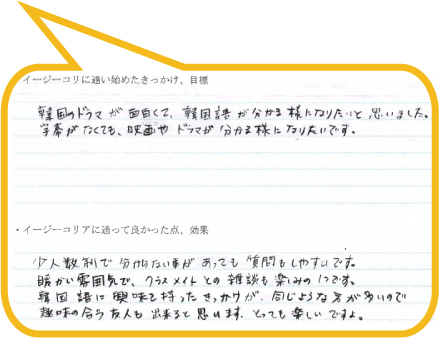 イージーコリに通い始めたきっかけ、目標
韓国のドラマが面白くて、韓国語が分かる様になりたいと思いました。
字幕がなくても、映画やドラマが分かる様になりたいです。
・イージーコリアに通って良かった点、効果
少人数制で分からない事があっても質問もしやすいです。
暖かい雰囲気で、クラスメイトとの雑談も楽しみの1つです。
韓国語に興味を持ったきっかけが、同じような方が多いので
趣味の合う友人も出来ると思います。とっても楽しいですよ。